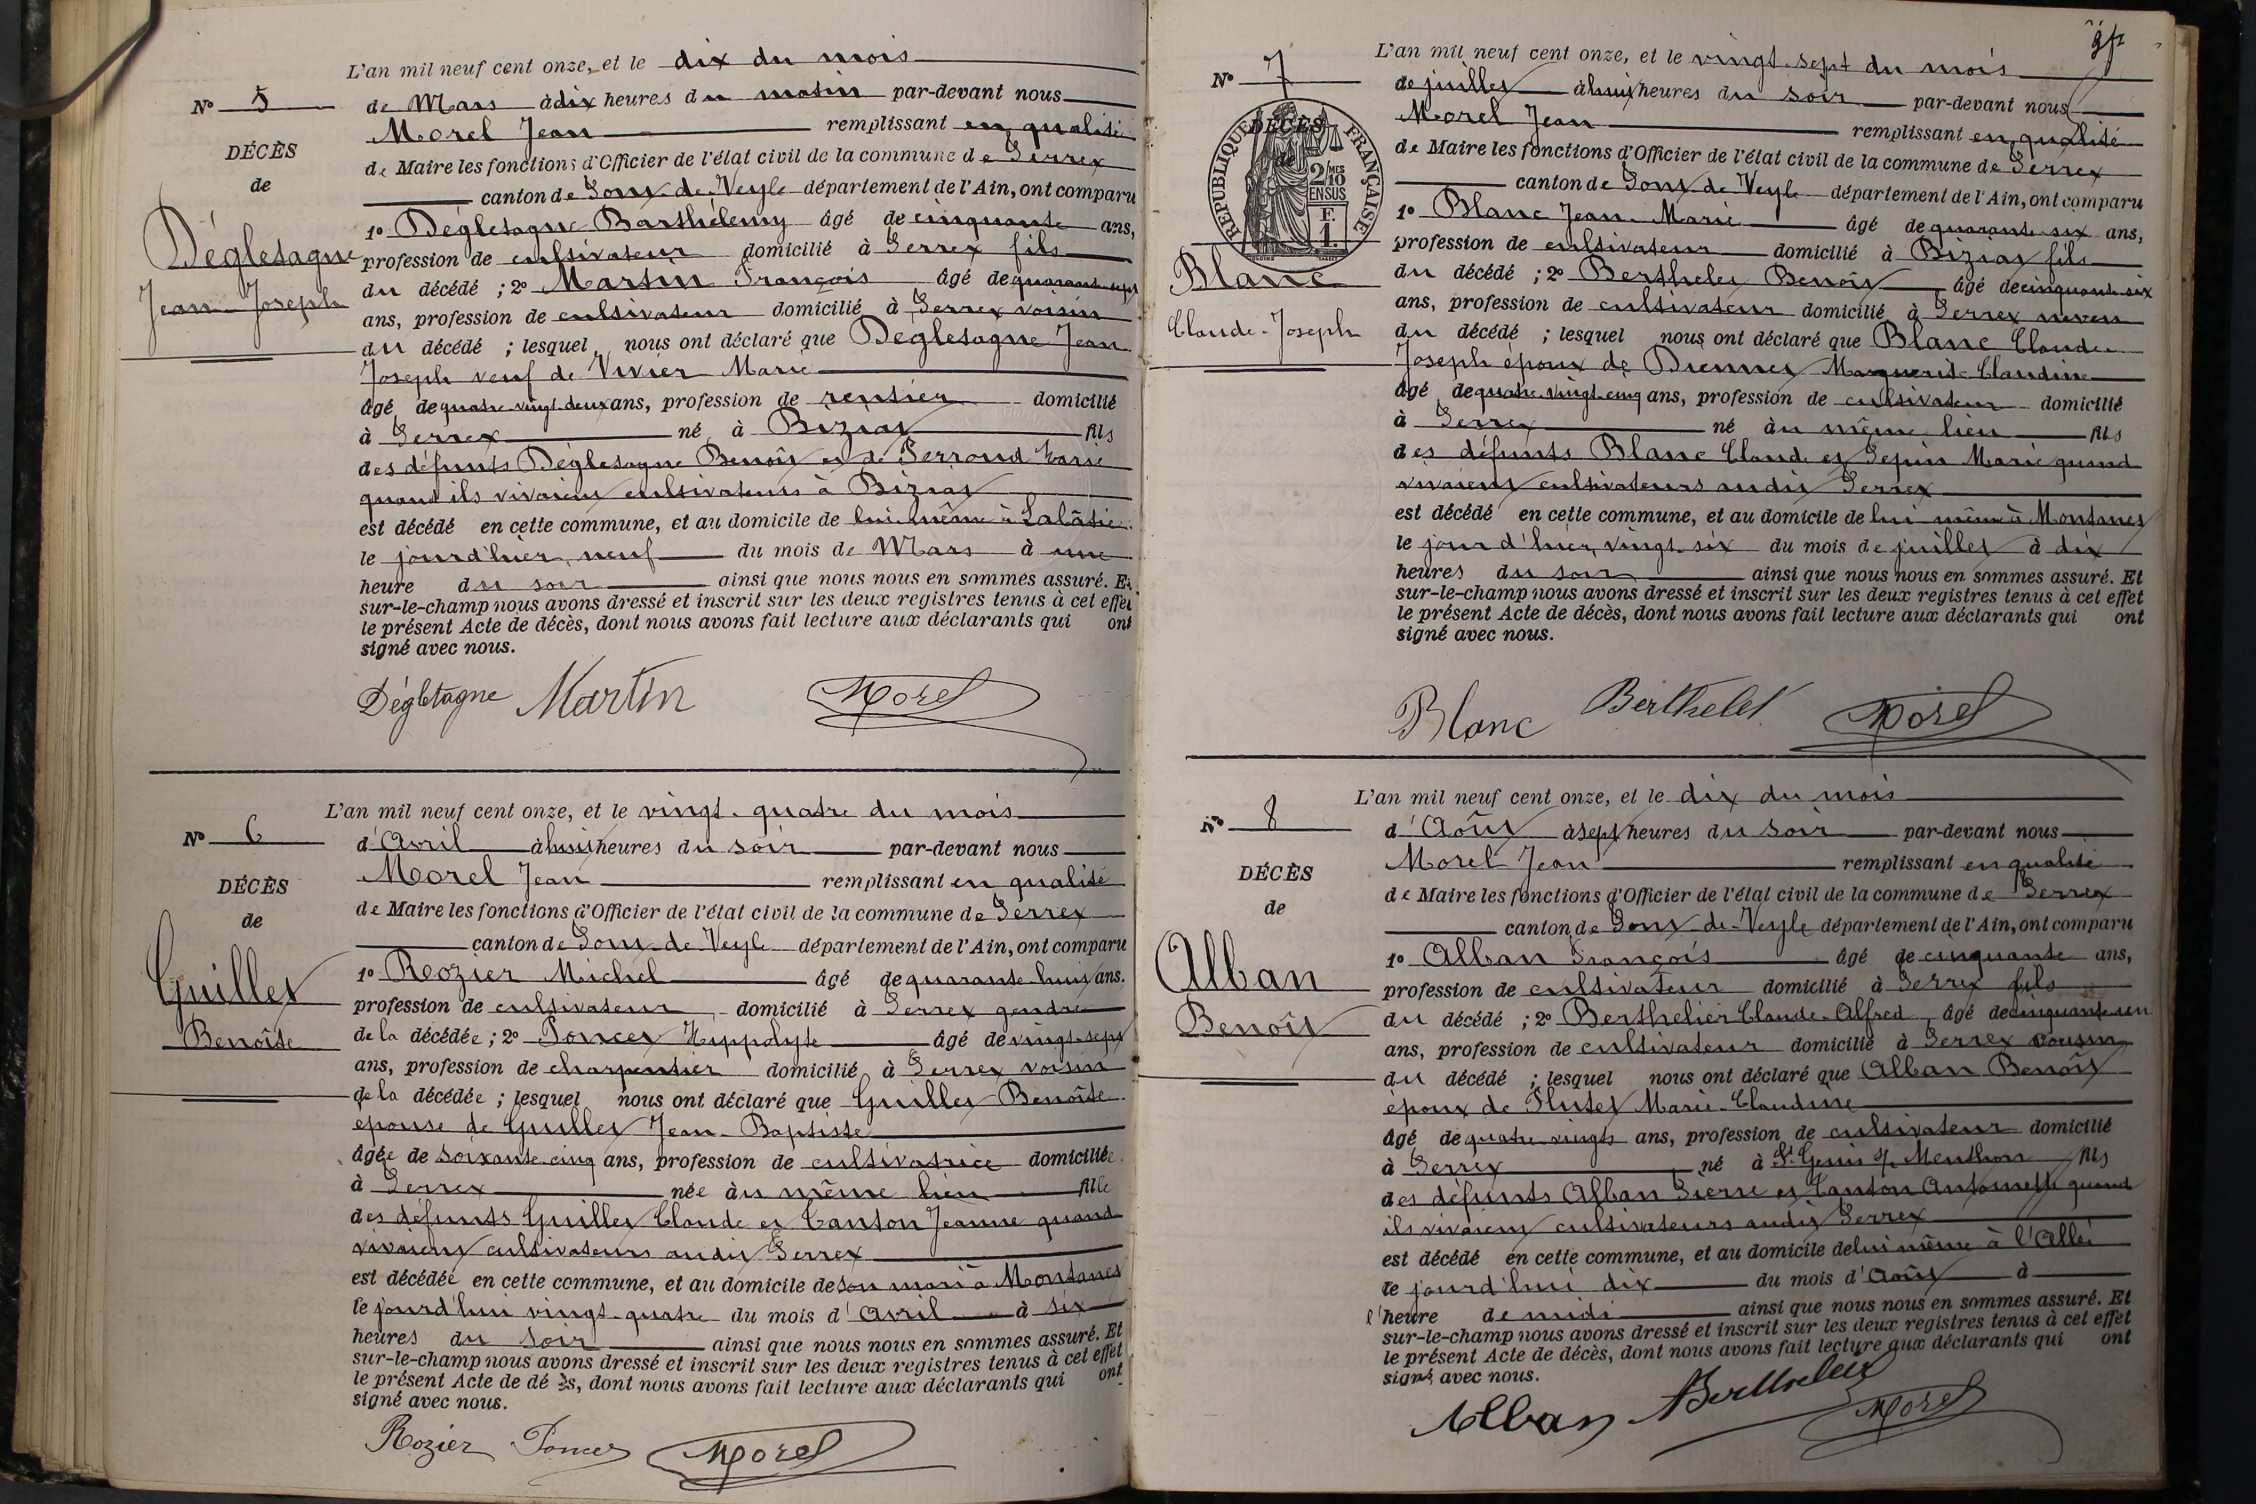 L'an mil neuf cent onze, et le dix du mois
N° 5
de Mars à dix heures du matin par-devant nous
Morel Jean remplissant en qualité
DÉCÈS
de Maire les fonctions d'Officier de l'état civil de la commune de Perrex
de
canton de Pont-de-Veyle département de l'Ain, ont comparu
1° Dégletagne Barthélemy âgé de cinquante ans,
Dégletagne
profession de cultivateur domicilié à Perrex fils
du décédé ; 2° Martin François âgé de quarante sept
Jean-Joseph
ans, profession de cultivateur domicilié à Perrex voisin
du décédé ; lesquel nous ont déclaré que Dégletagne Jean
Joseph veuf de Vivier Marie
âgé de quatre vingt-deux ans, profession de rentier domicilié
à Perrex né à Biziat fils
des défunts Dégletagne Benoît et de Perroud Marie
quand ils vivaient cultivateurs à Biziat
est décédé en cette commune, et au domicile de lui même à
le jourd'hier, neuf du mois de Mars à une
heure du soir ainsi que nous nous en sommes assuré. Et
sur-le-champ nous avons dressé et inscrit sur les deux registres tenus à cet effet
le présent Acte de décès, dont nous avons fait lecture aux déclarants qui ont
signé avec nous.
Dégletagne Martin Morel
L'an mil neuf cent onze, et le vingt-quatre du mois
N° 6
d'Avril à huit heures du soir par-devant nous
Morel Jean remplissant en qualité
DÉCÈS
de Maire les fonctions d'Officier de l'état civil de la commune de Perrex
de
canton de Pont-de-Veyle département de l'Ain, ont comparu
1° Rozier Michel âgé de quarante-huit ans.
Guillet
profession de cultivateur domicilié à Perrex gendre
Benoîte
de la décédée ; 2° Poncet Hyppolyte âgé de vingt-sept
ans, profession de charpentier domicilié à Perrex voisin
de la décédée ; lesquel nous ont déclaré que Guillet Benoîte
épouse de Guillet Jean-Baptiste
âgée de soixante-cinq ans, profession de cultivatrice domiciliée
à Perrex née au même lieu fille
des défunts Guillet Claude et Canton Jeanne quand
vivaient cultivateurs audit Perrex
est décédée en cette commune, et au domicile de son mari à Montanet
le jourd'hui vingt-quatre du mois d'Avril à six
heures du soir ainsi que nous nous en sommes assuré. Et
sur-le-champ nous avons dressé et inscrit sur les deux registres tenus à cet effet
le présent Acte de décès, dont nous avons fait lecture aux déclarants qui ont
signé avec nous.
Rozier Poncet Morel
L'an mil neuf cent onze, et le vingt-sept du mois
N° 7
de juillet à huit heures du soir par-devant nous
Morel Jean remplissant en qualité
DÉCÈS
de
RÉPUBLIQUE FRANÇAISE
2/10 MES
EN SUS
F.
1.
de Maire les fonctions d'Officier de l'état civil de la commune de Perrex
canton de Pont-de-Veyle département de l'Ain, ont comparu
1° Blanc Jean-Marie âgé de quarante-six ans,
profession de cultivateur domicilié à Biziat fils
Blanc
du décédé ; 2° Berthelet Benoît âgé de cinquante-six
ans, profession de cultivateur domicilié à Perrex neveu
Claude-Joseph
du décédé ; lesquel nous ont déclaré que Blanc Claude
Joseph époux de Marguerite Claudine
âgé de quatre-vingt-cinq ans, profession de cultivateur domicilié
à Perrex né au même lieu fils
des défunts Blanc Claude et Pepin Marie quand
vivaient cultivateurs audit Perrex
est décédé en cette commune, et au domicile de lui même à Montanet
le jour d'hier, vingt-six du mois de juillet à dix
heures du soir ainsi que nous nous en sommes assuré. Et
sur-le-champ nous avons dressé et inscrit sur les deux registres tenus à cet effet
le présent Acte de décès, dont nous avons fait lecture aux déclarants qui ont
signé avec nous.
Blanc Berthelet Morel
L'an mil neuf cent onze, et le dix du mois
N° 8
d'Août à sept heures du soir par-devant nous
Morel Jean remplissant en qualité
DÉCÈS
de Maire les fonctions d'Officier de l'état civil de la commune de Perrex
de
canton de Pont-de-Veyle département de l'Ain, ont comparu
1° Alban François âgé de cinquante ans,
Alban
profession de cultivateur domicilié à Perrex fils
Benoît
du décédé ; 2° Berthelier Claude-Alfred âgé de cinquante-un
ans, profession de cultivateur domicilié à Perrex cousin
du décédé ; lesquel nous ont déclaré que Alban Benoît
époux de Plutet Marie-Claudine
âgé de quatre-vingts ans, profession de cultivateur domicilié
à Perrex né à St Genis s/ Menthon fils
des défunts Alban Pierre et Canton Antoinette quand
ils vivaient cultivateurs audit Perrex
est décédé en cette commune, et au domicile de lui même à l'Allée
le jourd'hui dix du mois d'Août à
l'heure de midi ainsi que nous nous en sommes assuré. Et
sur-le-champ nous avons dressé et inscrit sur les deux registres tenus à cet effet
le présent Acte de décès, dont nous avons fait lecture aux déclarants qui ont
signé avec nous.
Alban Berthelier Morel